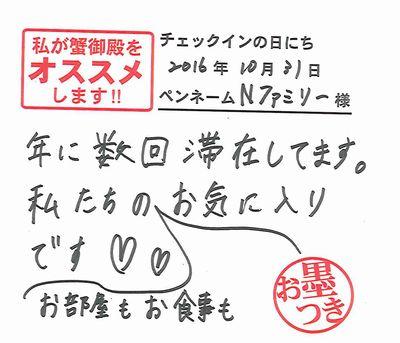 私が蟹御殿を
オススメ
します!!
チェックインの日にち
2016年10月31日
ペンネームNファミリー様
年に数回滞在してます。
私たちのお気に入り
です♡♡
お部屋もお食事も
お墨つき